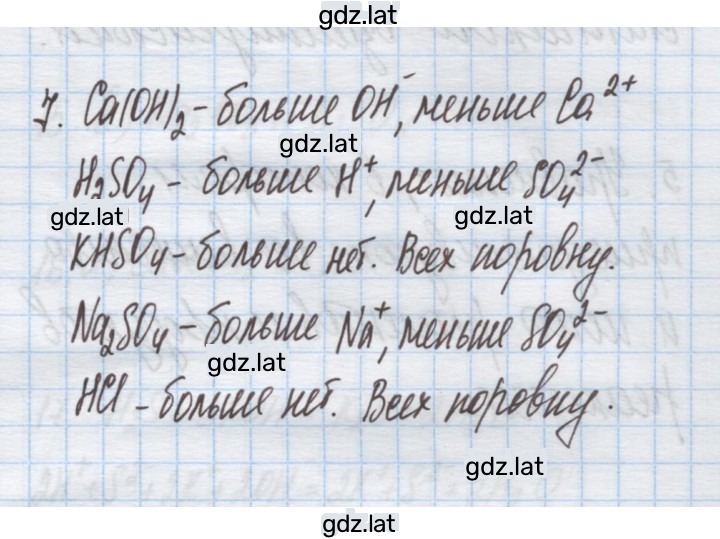 gdz.lat
7. Ca(OH)₂ - больше OH⁻, меньше Ca²⁺
gdz.lat
H₂SO₄ - больше H⁺, меньше SO₄²⁻
gdz.lat gdz.lat
KHSO₄ - больше нет. Всех поровну.
Na₂SO₄ - больше Na⁺, меньше SO₄²⁻
gdz.lat
HCl - больше нет. Всех поровну.
gdz.lat
gdz.lat